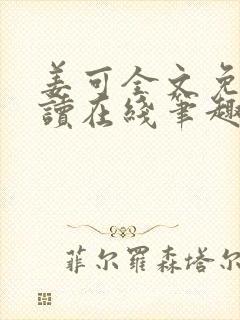 姜可全文免
讀在綫筆趣
菲尔羅森塔尔